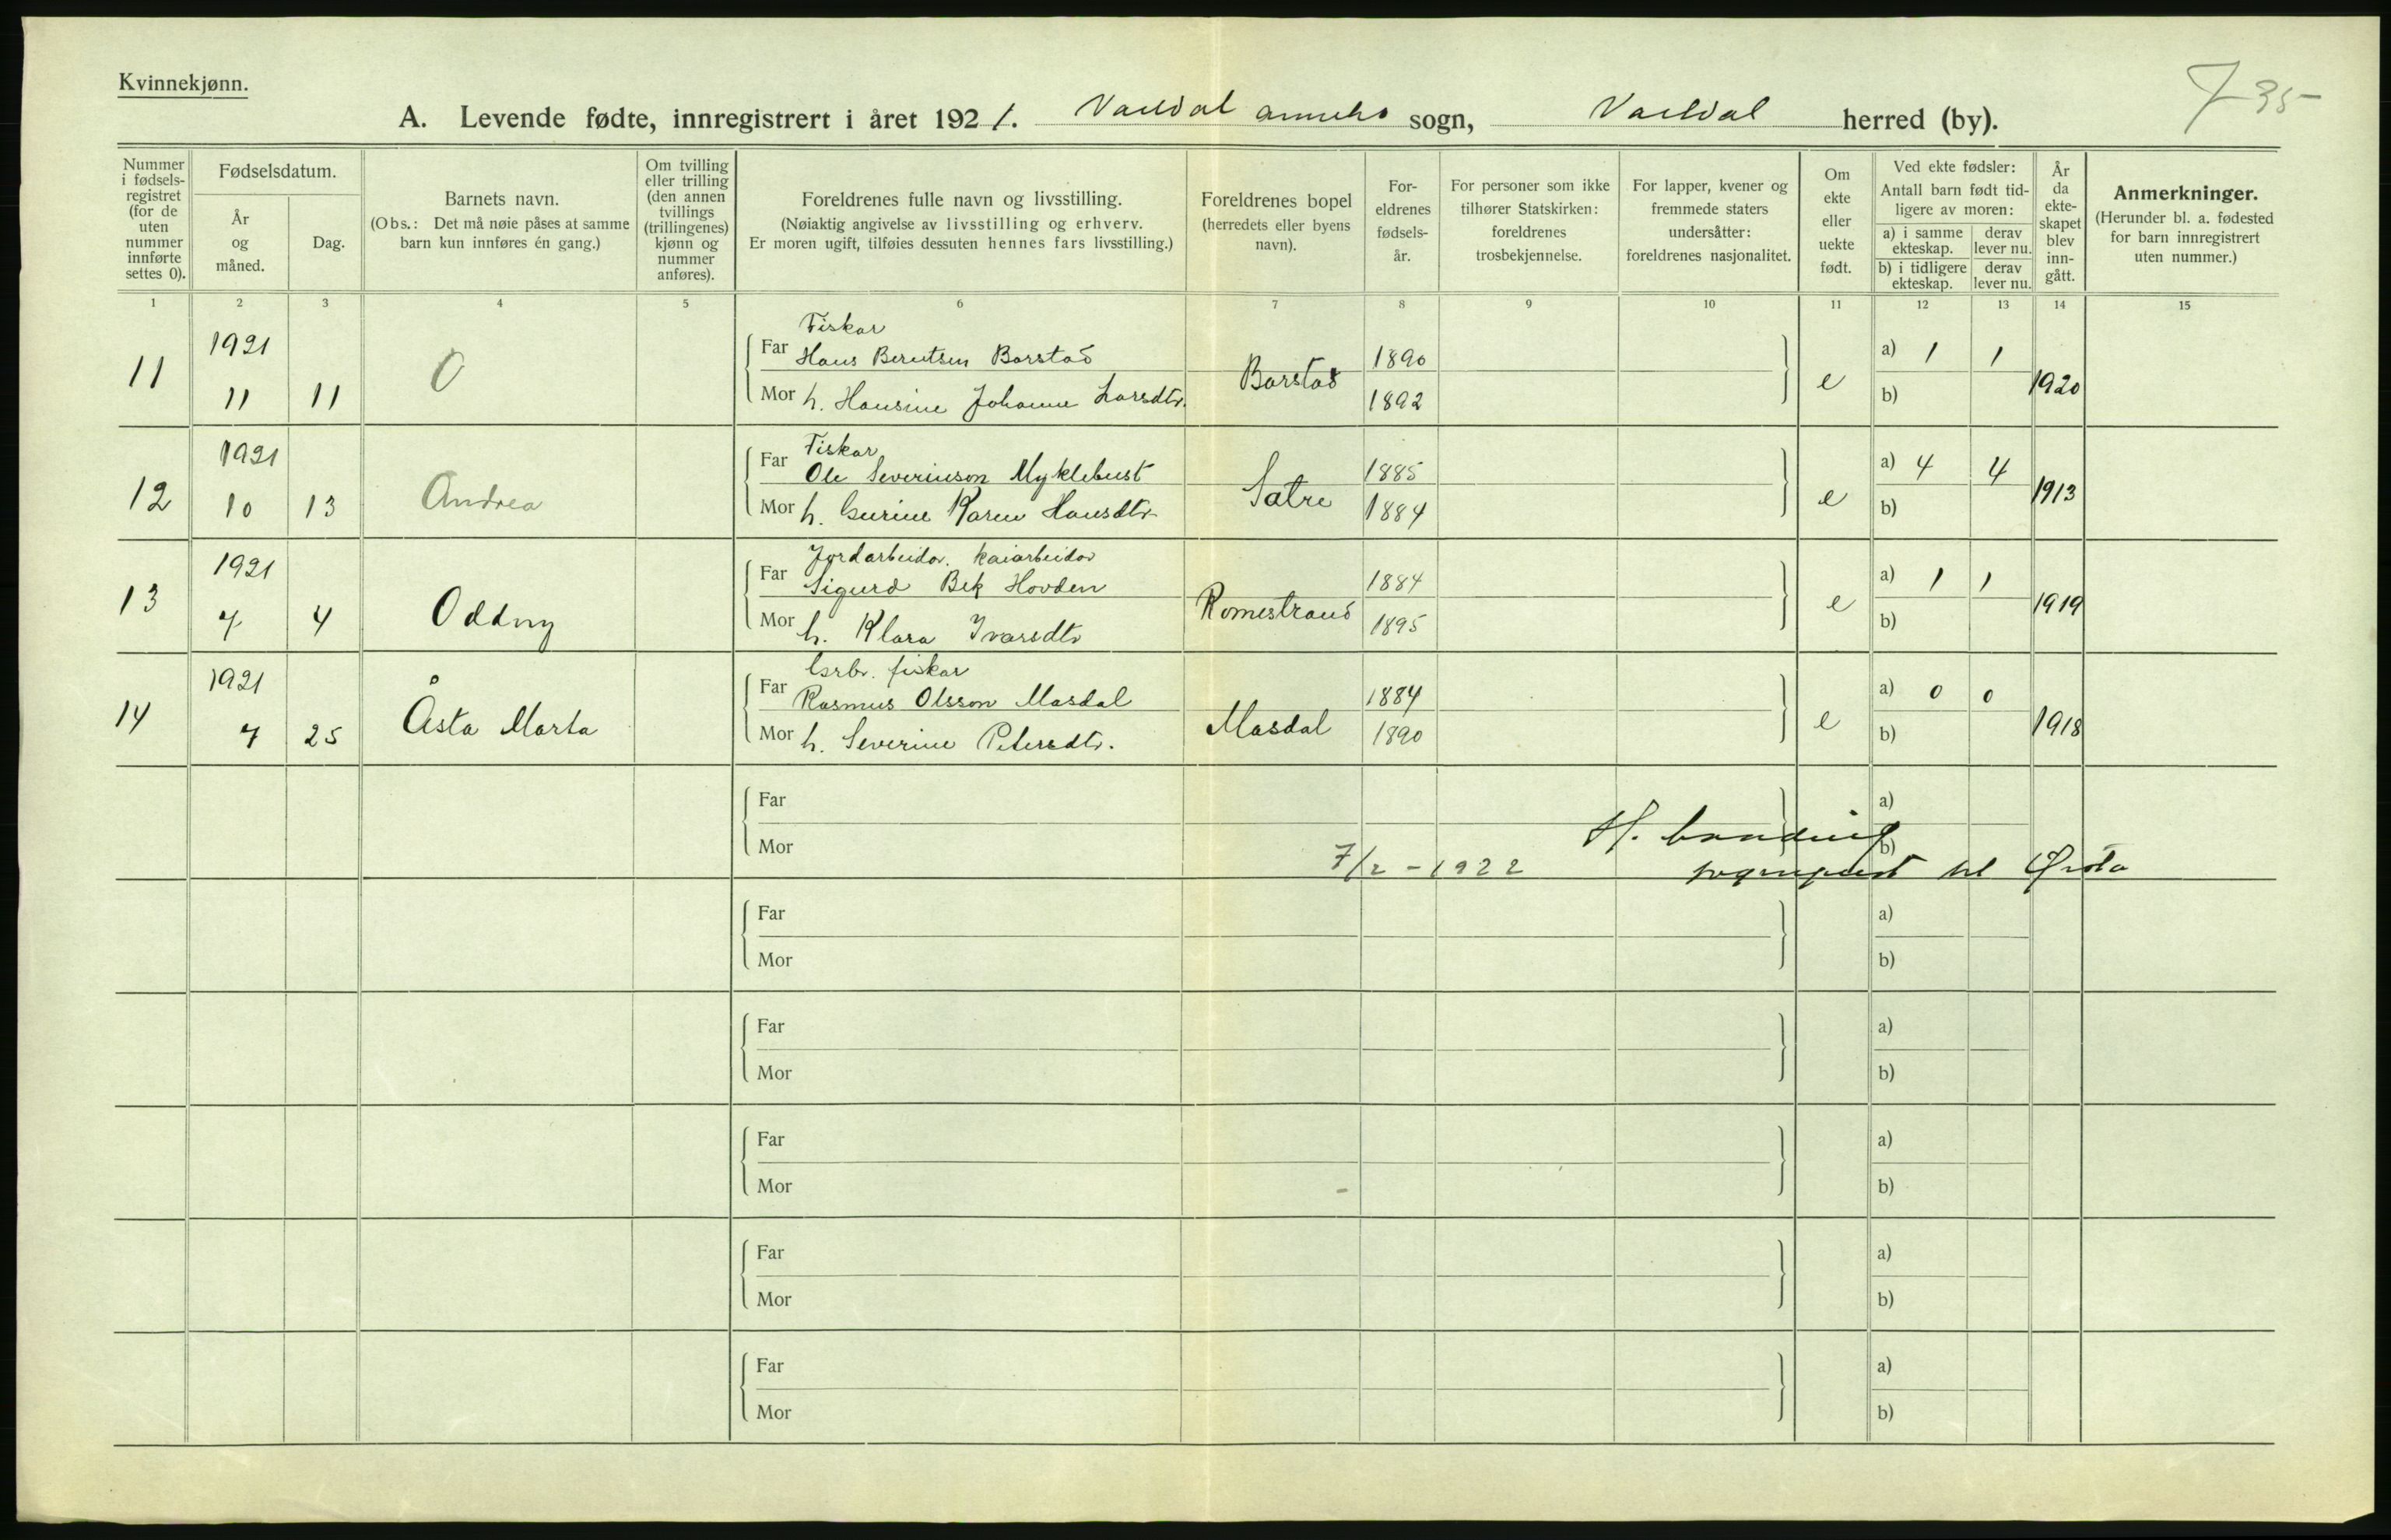 Kvinnekjønn.
7 35
A. Levende fødte, innregistrert i året 1921. Vartdal sogn, Vartdal herred (by).
Nummer i fødsels-registret (for de uten nummer innførte settes 0).
Fødselsdatum.
År og måned.
Dag.
Barnets navn.
(Obs.: Det må nøie påses at samme barn kun innføres én gang.)
Om tvilling eller trilling (den annen tvillings (trillingenes) kjønn og nummer anføres).
Foreldrenes fulle navn og livsstilling.
(Nøiaktig angivelse av livsstilling og erhverv.
Er moren ugift, tilføies dessuten hennes fars livsstilling.)
Foreldrenes bopel (herredets eller byens navn).
For-eldrenes fødsels-år.
For personer som ikke tilhører Statskirken: foreldrenes trosbekjennelse.
For lapper, kvener og fremmede staters undersåtter: foreldrenes nasjonalitet.
Om ekte eller uekte født.
Ved ekte fødsler:
Antall barn født tid-ligere av moren:
a) i samme ekteskap.
derav lever nu.
b) i tidligere ekteskap.
derav lever nu.
År da ekte-skapet blev inn-gått.
Anmerkninger.
(Herunder bl. a. fødested for barn innregistrert uten nummer.)
1 2 3 4 5 6 7 8 9 10 11 12 13 14 15
Fiskar
11 1921 11 11 0
Far Hans Berntsen Barstad 1890
Mor h. Hansine Johanne Larsdtr. 1892
Barstad e a) 1 1 b) 1920
Fiskar
12 1921 10 13 Andrea
Far Ole Severinson Myklebust 1885
Mor h. Gurine Karen Hansdtr. 1884
Sætre e a) 4 4 b) 1913
Jordarbeidar. kaiarbeidar
13 1921 7 4 Oddny
Far Sigurd Bek Hovden 1884
Mor h. Klara Ivarsdtr 1895
Romestrand e a) 1 1 b) 1919
Grbr. fiskar
14 1921 7 25 Åsta Marta
Far Rasmus Olsson Masdal 1884
Mor h. Severine Petersdtr. 1890
Masdal e a) 0 0 b) 1918
Far a)
Mor b)
7/2 - 1922 H.
sogneprest til Ørsta
Far a)
Mor b)
Far a)
Mor b)
Far a)
Mor b)
Far a)
Mor b)
Far a)
Mor b)